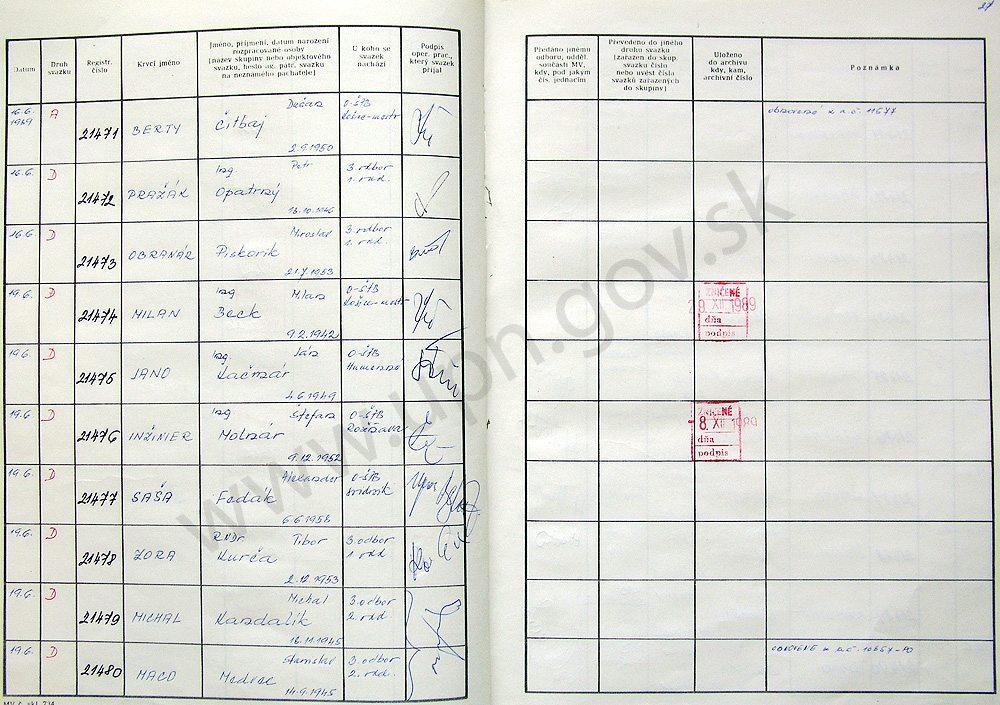 27
Datum
Druh
svazku
Registr.
číslo
Krycí jméno
Jméno, příjmení, datum narození
rozpracované osoby
(název skupiny nebo objektového
svazku, heslo ag. pátr. svazku
na neznámého pachatele)
U koho se
svazek
nachází
Podpis
oper. prac.,
který svazek
přijal
Předáno jinému
odboru, odděl.
součásti MV,
kdy, pod jakým
čís. jednacím
Převedeno do jiného
druhu svazku
(zařazen do skup.
svazku číslo
nebo uvést čísla
svazků zařazených
do skupiny)
Uloženo
do archivu
kdy, kam,
archivní číslo
Poznámka
16.6.
1989
A
21471
BERTY
Dušan
Čitbaj
2.9.1950
O-ŠtB
16.6.
D
21472
PRAŽÁK
Ing
Petr
Opatrný
18.10.1946
3. odbor
1. odd.
16.6.
D
21473
OBRANÁR
Miroslav
Piskorik
21.7.1953
3. odbor
1. odd.
19.6.
D
21474
MILAN
Ing
Milan
Beck
9.2.1942
O-ŠtB
ZNIČENÉ
XII. 1989
dňa
podpis
19.6.
D
21475
JANO
Ing
Ján
Kačmár
4.6.1949
O-ŠtB
Humenné
19.6.
D
21476
INŽINIER
Ing
Štefan
Molnár
9.12.1952
O-ŠtB
Rožňava
ZNIČENÉ
8. XII. 1989
dňa
podpis
19.6.
D
21477
SAŠA
Alexander
Fedák
6.6.1958
O-ŠtB
Svidník
19.6.
D
21478
ZORA
RNDr
Tibor
Kurča
2.12.1953
3. odbor
1. odd
19.6.
D
21479
MICHAL
Michal
Kandalík
18.11.1945
3. odbor
2. odd
19.6.
D
21480
MACO
Stanislav
Medvec
14.9.1945
3. odbor
2. odd.
www.upn.gov.sk